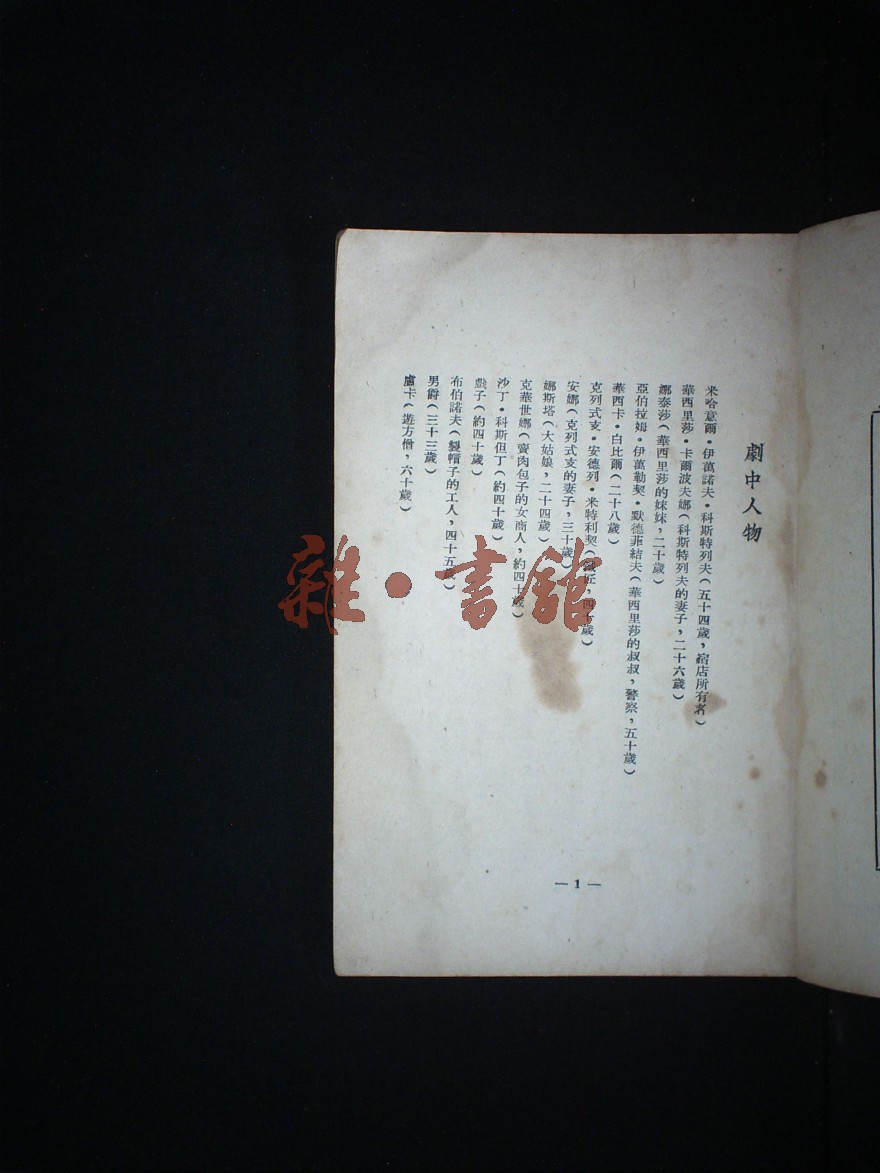 劇中人物
米哈意爾·伊萬諾夫·科斯特列夫(五十四歲,宿店所有者)
華西里莎·卡爾波夫娜(科斯特列夫的妻子,二十六歲)
娜泰莎(華西里莎的妹妹,二十歲)
亞伯拉姆·伊萬勒契·默德菲結夫(華西里莎的叔叔,警察,五十歲)
華西卡·白比爾(二十八歲)
克列式支·安德列·米特利契(鐵匠,四十歲)
安娜(克列式支的妻子,三十歲)
娜斯塔(大姑娘,二十四歲)
克華世娜(賣肉包子的女商人,約四十歲)
沙丁·科斯但丁(約四十歲)
戲子(約四十歲)
布伯諾夫(製帽子的工人,四十五歲)
男爵(三十三歲)
盧卡(遊方僧,六十歲)
— 1 —
雜·書館